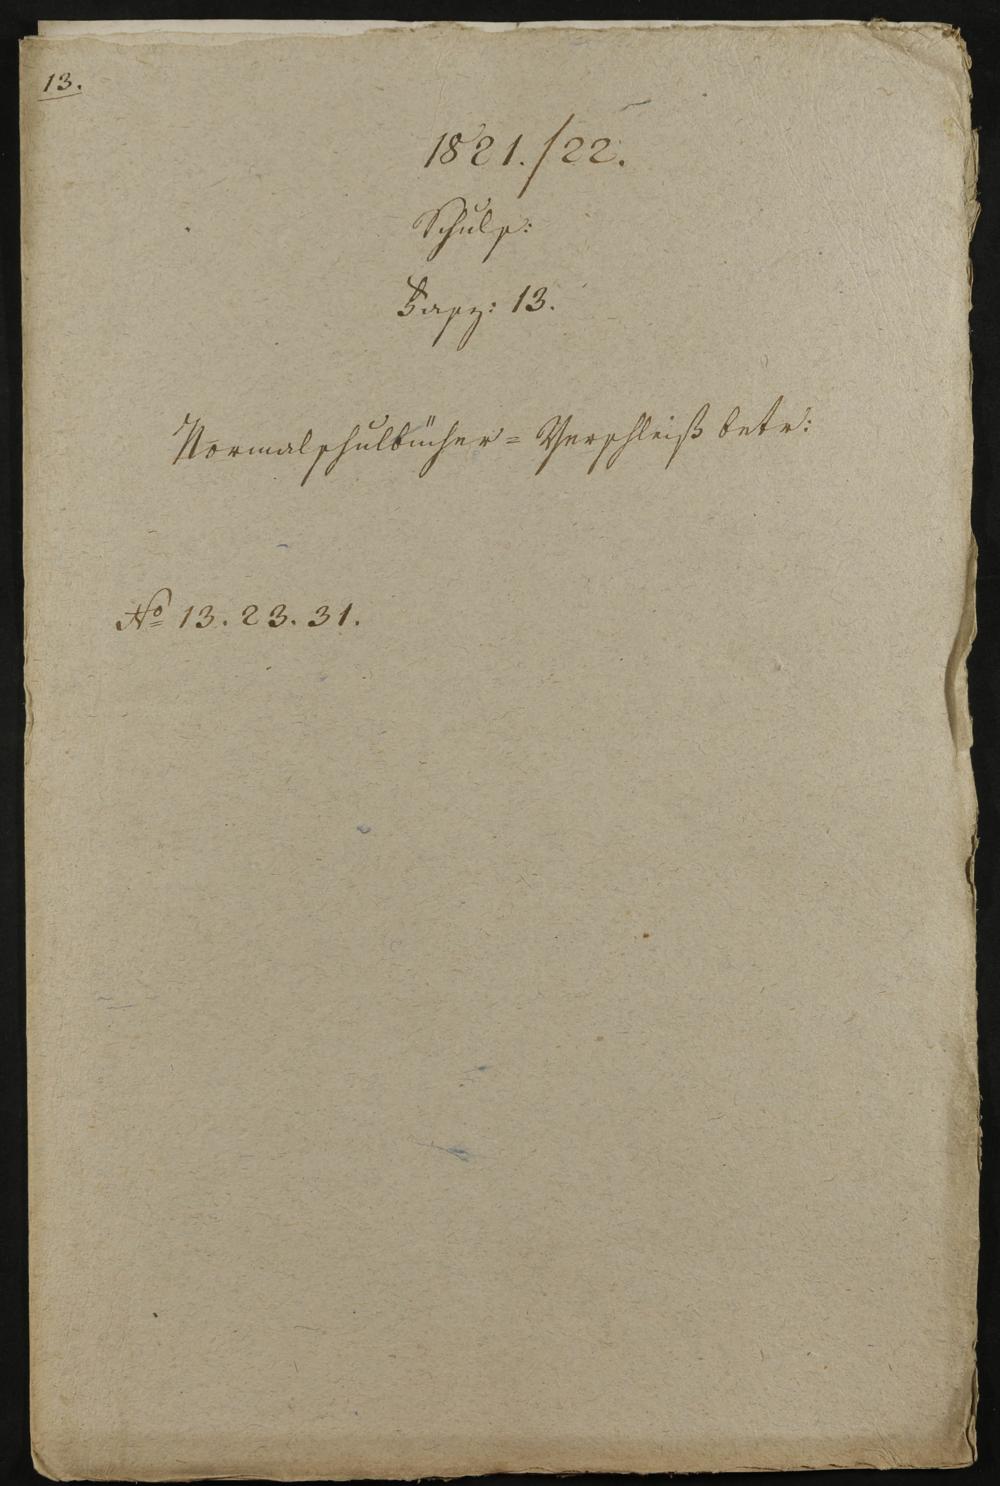 13.
1821./22.
Schuls:
Fasz: 13.
Normalschulbücher = Verschleiß betr:
No 13. 23. 31.